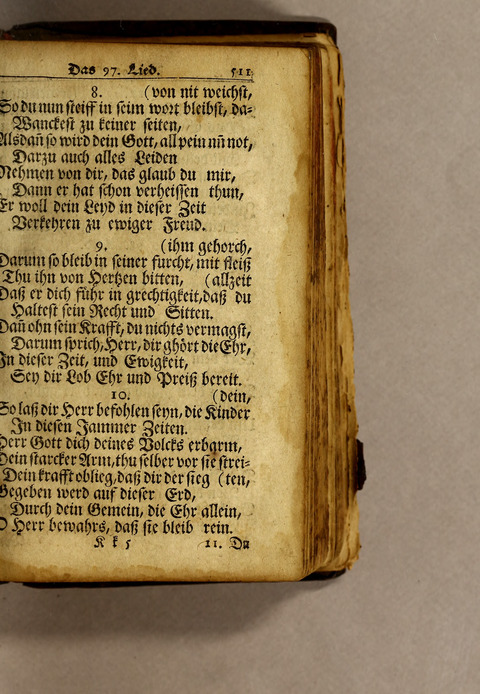 Das 97. Lied. 511
8. (von nit weichst,
So du nun steiff in seim wort bleibst, da-
Wanckest zu keiner seiten,
Alsdañ so wird dein Gott, all pein un̄ not,
Darzu auch alles Leiden
Nehmen von dir, das glaub du mir,
Dann er hat schon verheissen thun,
Er woll dein Leyd in dieser Zeit
Verkehren zu ewiger Freud.
9. (ihm gehorch,
Darum so bleib in seiner furcht, mit fleiß
Thu ihn von Hertzen bitten, (allzeit
Daß er dich führ in grechtigkeit, daß du
Haltest sein Recht und Sitten.
Dañ ohn sein Krafft, du nichts vermagst,
Darum sprich, Herr, dir ghört die Ehr,
In dieser Zeit, und Ewigkeit,
Sey dir Lob Ehr und Preiß bereit.
10. (dein,
So laß dir Herr befohlen seyn, die Kinder
In diesen Jammer Zeiten.
Herr Gott dich deines Volcks erbarm,
Dein starcker Arm, thu selber vor sie strei-
Dein krafft oblieg, daß dir der sieg (ten,
Gegeben werd auf dieser Erd,
Durch dein Gemein, die Ehr allein,
O Herr bewahrs, daß sie bleib rein.
K k 5 11. Du